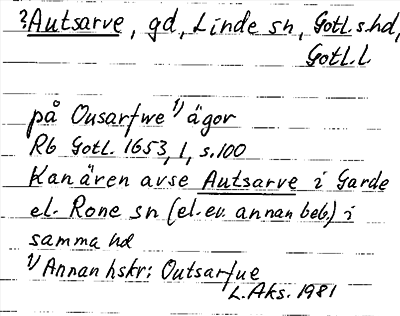 ?Autsarve, gd, Linde sn, Gotl. s. hd,
Gotl. l.
på Ousarfwe 1) ägor
Rb Gotl. 1653, 1, s. 100
Kan även avse Autsarve i Garde
el. Rone sn (el. ev. annan beb.) i
samma hd
1) Annan hskr: Outsarfue
L. Aks. 1981